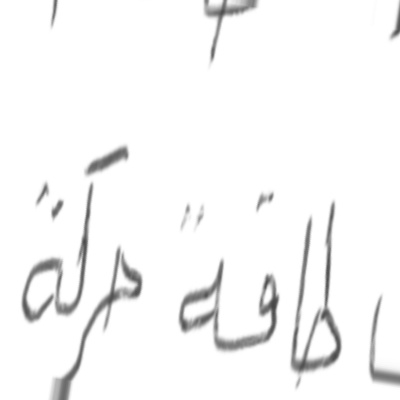 طاقة حركة